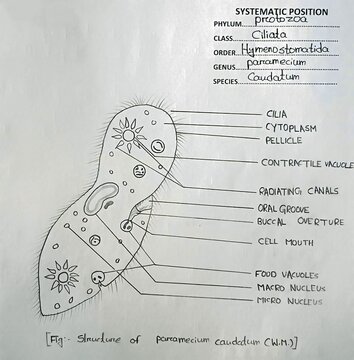 SYSTEMATIC POSITION
PHYLUM....protozoa
CLASS....Ciliata
ORDER...Hymenostomatida
GENUS....paramecium
SPECIES....Caudatum
CILIA
CYTOPLASM
PELLICLE
CONTRACTILE VACUOLE
RADIATING CANALS
ORAL GROOVE
BUCCAL OVERTURE
CELL MOUTH
FOOD VACUOLES
MACRO NUCLEUS
MICRO NUCLEUS
[Fig:- Structure of paramecium caudatum (W.M.)]